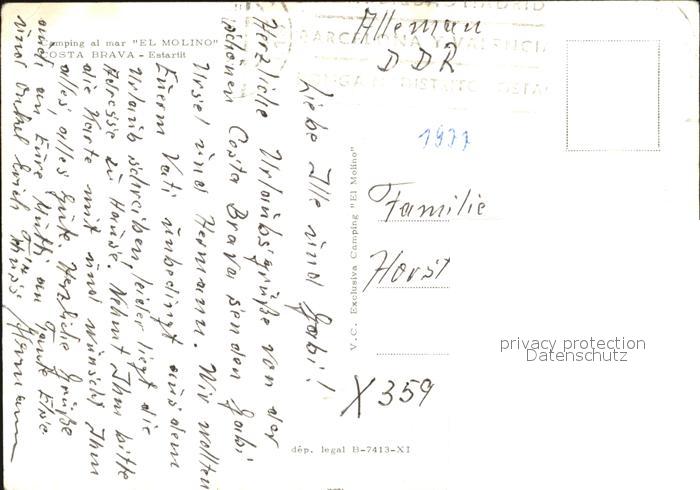 Camping al mar "EL MOLINO"
COSTA BRAVA - Estartit
MADRID
BARCELONA Y VALENCIA
PONGA DISTRITO POSTAL
Alleman
DDR
1977
Familie
Horst
X 359
V. C. Exclusiva Camping "El Molino"
dép. legal B-7413-XI
privacy protection
Datenschutz
Liebe Ille und Gabi!
Herzliche Urlaubsgrüße von der
schönen Costa Brava senden Gabi
Ursel und Hermann. Wir wollten
Euerm Vati unbedingt aus dem
Urlaub schreiben, leider liegt die
Adresse zu Hause. Nehmt Ihm bitte
die Karte mit und wünscht Ihm
alles alles Gute. Herzliche Grüße
auch an Eure Mutti an Tante Else
und Onkel Erich
Hermann